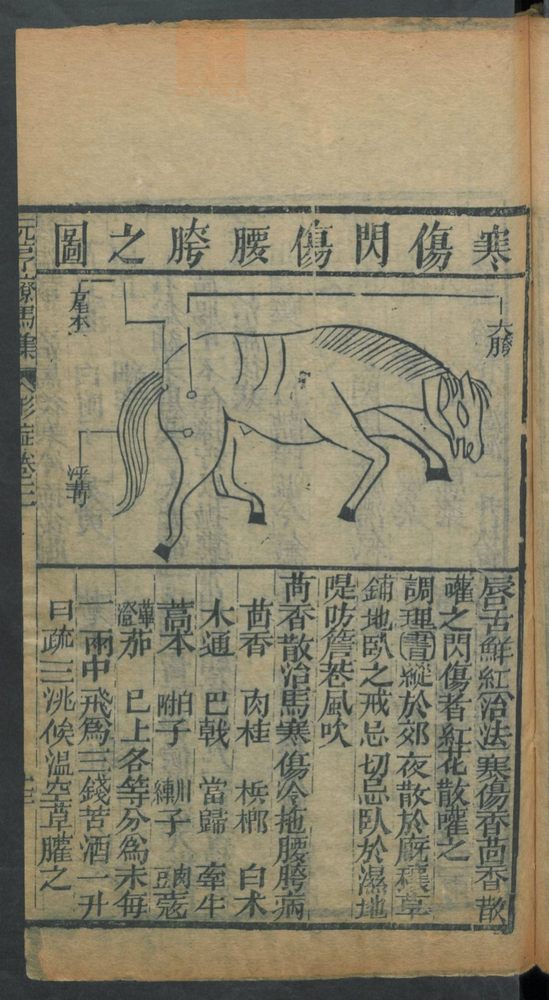 寒傷閃傷腰胯之圖
大胯
尾本
汗溝
唇舌鮮紅治法寒傷香茴香散
嚾之閃傷者紅花散嚾之
調理晝縱於郊夜散於厩穰草
鋪地臥之戒忌切忌臥於濕地
隄防簷巷風吹
茴香散治馬寒傷冷拖腰胯病
茴香 肉桂 檳榔 白术
木通 巴戟 當歸 牽牛
藁本 附子 川練子 肉豆蔻
蓽澄茄 已上各等分為末每
一兩 飛
三錢苦酒一升
曰疏三洮候溫空草嚾之
元亨療馬集 卷二